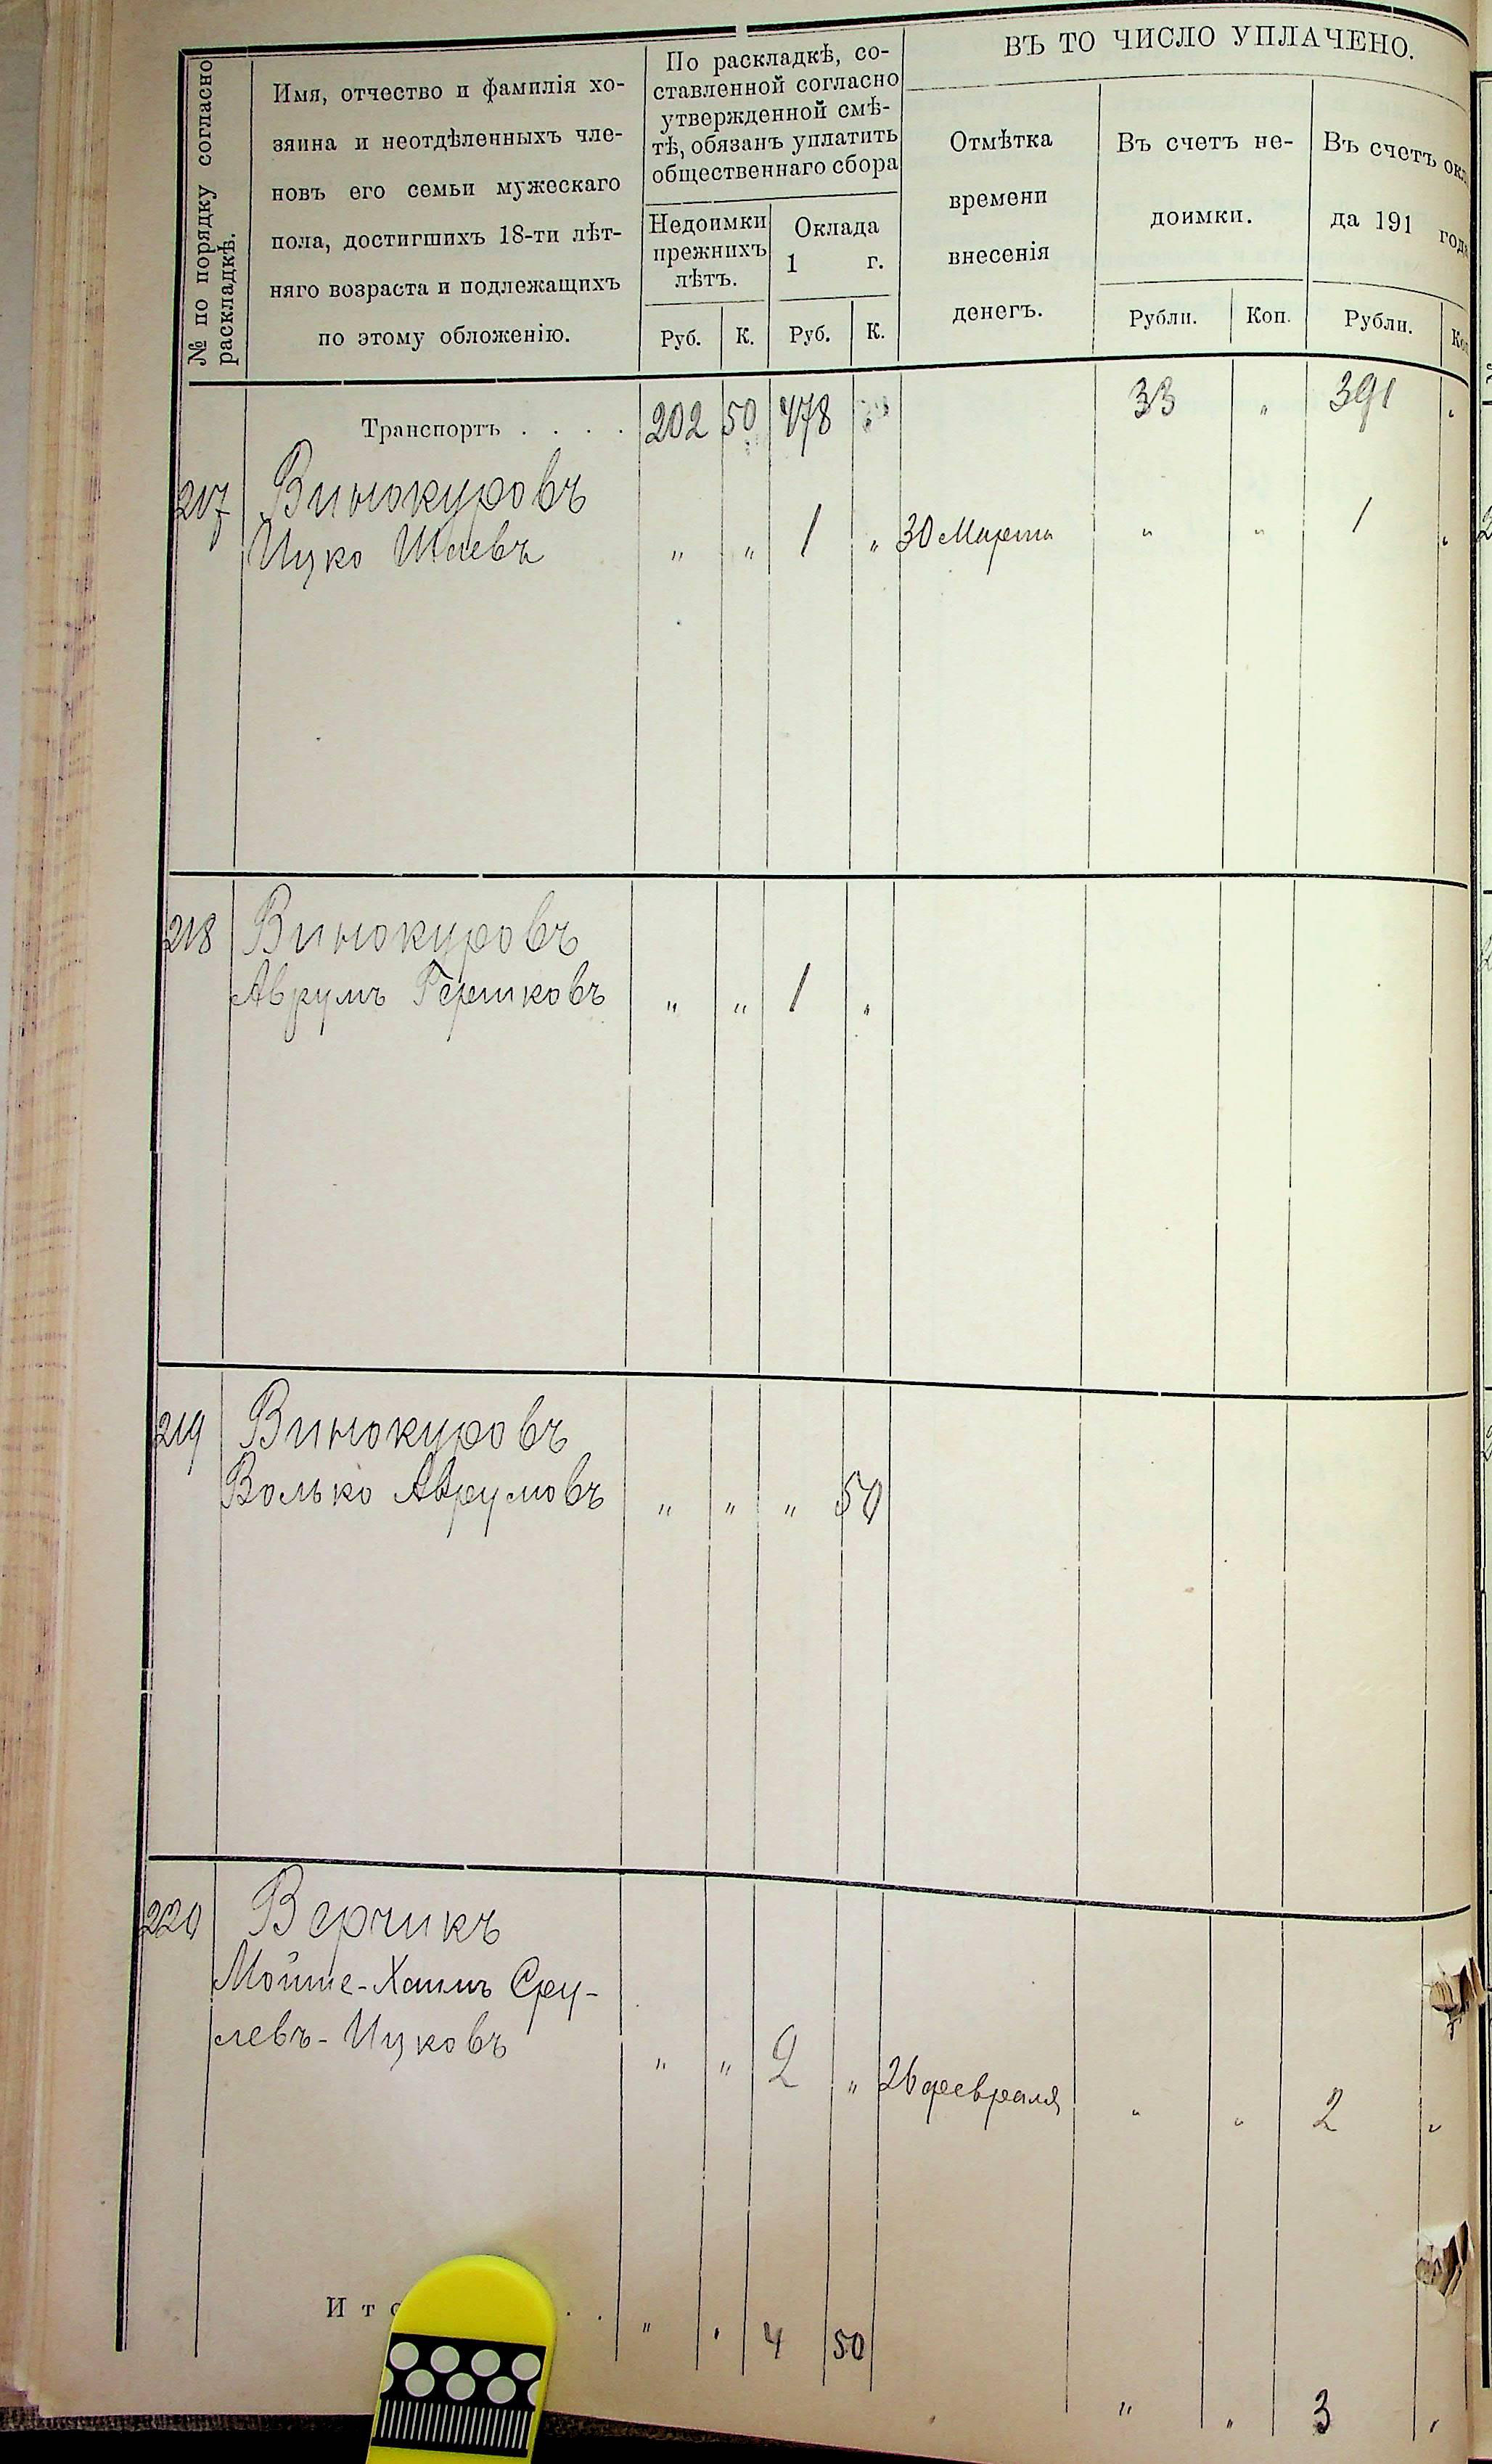 № по порядку согласно
раскладкѣ.
Имя, отчество и фамилія хо-
зяина и неотдѣленныхъ чле-
новъ его семьи мужескаго
пола, достигшихъ 18-ти лѣт-
няго возраста и подлежащихъ
по этому обложенію.
По раскладкѣ, со-
ставленной согласно
утвержденной смѣ-
тѣ, обязанъ уплатить
общественнаго сбора
Недоимки
прежнихъ
лѣтъ.
Оклада
1 г.
Руб. К. Руб. К.
ВЪ ТО ЧИСЛО УПЛАЧЕНО.
Отмѣтка
времени
внесенія
денегъ.
Въ счетъ не-
доимки.
Рубли. Коп.
Въ счетъ окла
да 191 года
Рубли. Коп
Транспортъ . . . . 202 50 478 33 „ 391 „
217 Винокуровъ
Ицко Шаевъ „ „ 1 „ 30 Марта „ „ 1 „
218 Винокуровъ
Аврумъ Гершковъ „ „ 1 „
219 Винокуровъ
Волько Аврумовъ „ „ „ 50
220 Верчикъ
Мойше-Хаимъ Сру-
левъ-Ицковъ „ „ 2 „ 26 февраля „ „ 2 „
Ито . . „ „ 4 50 „ „ 3 „